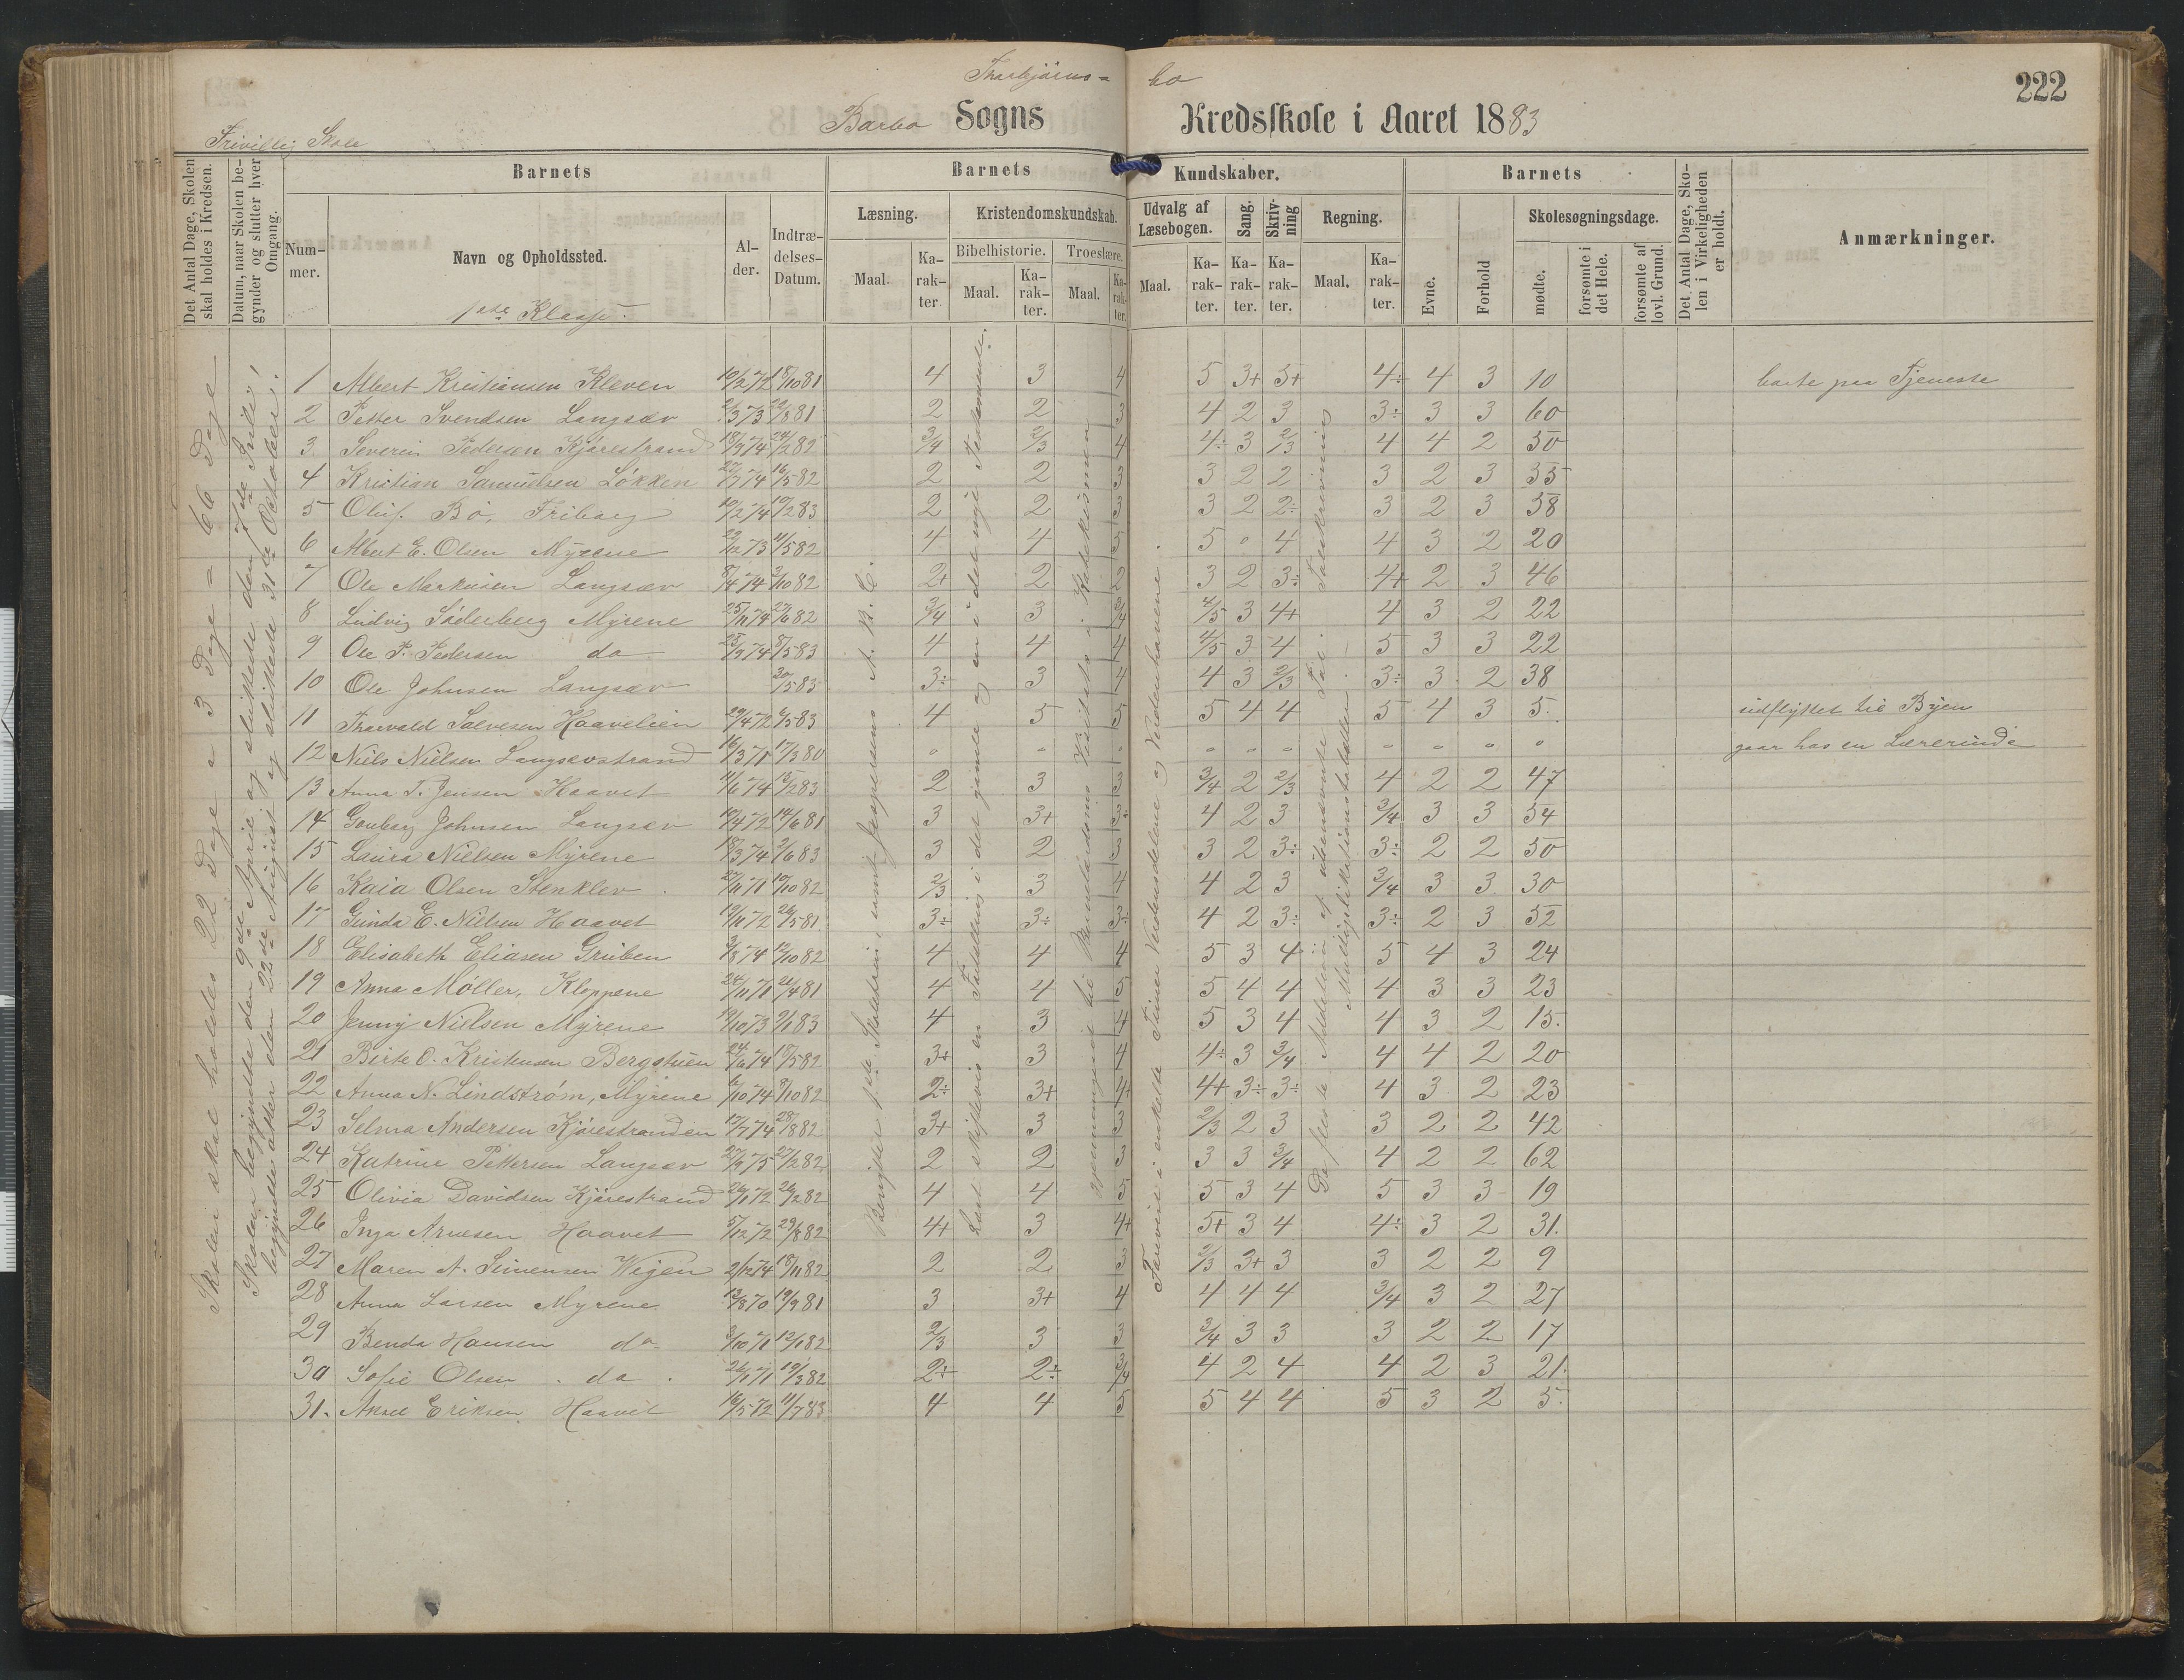 Thorbjörns=bo
222
Barbo Sogns Kredsskole i Aaret 1883
Frivillig Skole
Det Antal Dage, Skolen skal holdes i Kredsen.
Datum, naar Skolen begynder og slutter hver Omgang.
Barnets
Barnets Kundskaber.
Barnets
Det Antal Dage, Skolen i Virkeligheden er holdt.
Anmærkninger.
Nummer.
Navn og Opholdssted.
1ste Klasse.
Alder.
Indtrædelses-Datum.
Læsning.
Kristendomskundskab.
Udvalg af Læsebogen.
Sang.
Skrivning
Regning.
Evne.
Forhold
Skolesøgningsdage.
Bibelhistorie.
Troeslære.
Maal.
Karakter.
mødte.
forsømte i det Hele.
forsømte af lovl. Grund.
Skolen skal holdes 22 Dage a 3 Dage = 66 Dage
Skolen begyndte den 9de April og sluttede den 7de Juli,
begyndte atter den 22de August og sluttede 31te Oktober.
1 Albert Kristiansen Kleven 10/2 72 18/10 81 4 3 4 5 3+ 5+ 4÷ 4 3 10 borte paa Tjeneste
2 Petter Svendsen Langsæv 2/3 73 29/8 81 2 2 3 4 2 3 3÷ 3 3 60
3 Severin Pedersen Kjörestrand 18/9 74 24/2 82 3/4 2/3 4 4÷ 3 2/3 4 4 2 50
4 Kristian Samuelsen Løkken 27/7 74 16/5 82 2 2 3 3 2 2 3 2 3 35
5 Oluf. Bo, Friborg 10/2 74 19/2 83 2 2 3 3 2 2÷ 3 2 3 58
6 Albert E. Olsen Myrene 29/12 73 11/5 82 4 4 5 5 " 4 4 3 2 20
7 Ole Markusen Langsæv 8/4 74 3/10 82 2+ 2 2 3 2 3÷ 4+ 2 3 46
8 Ludvig Söderberg Myrene 25/11 74 27/6 82 3/4 3 3/4 4/5 3 4+ 4 3 2 22
9 Ole P. Pedersen do 25/9 74 8/5 83 4 4 4 4/5 3 4 5 3 3 22
10 Ole Johnsen Langsæv 30/5 83 3÷ 3 4 4 3 2/3 3÷ 3 2 38
11 Thorvald Salvesen Haavelien 29/4 72 6/5 83 4 5 5 5 4 4 5 4 3 5. udflyttet til Byen
12 Niels Nielsen Langsævstrand 16/3 71 17/3 80 " " " " " " " " " " gaar hos en Lærerinde
13 Anna T. Jensen Haavet 11/6 74 15/2 83 2 3 3 3/4 2 2/3 4 2 2 47
14 Gonborg Johnsen Langsæv 10/4 72 14/6 81 3 3+ 3÷ 4 2 3 3/4 3 3 54
15 Laura Nielsen Myrene 18/3 74 2/6 83 3 2 3 3 2 3÷ 3÷ 2 2 50
16 Kaia Olsen Stenklev 27/11 71 10/10 82 2/3 3 4 4 2 3 3/4 3 3 30
17 Gunda E. Nilsen Haavet 19/11 72 26/5 81 3÷ 3÷ 3÷ 4 2 3÷ 3÷ 2 3 52
18 Elisabeth Eliasen Gruben 3/8 74 12/10 82 4 4 4 5 3 4 5 4 3 24
19 Anna Møller, Kloppene 24/11 71 21/4 81 4 4 5 5 4 4 4 3 3 23
20 Jenny Nielsen Myrene 12/10 73 2/1 83 4 3 4 5 3 4 4 3 2 15.
21 Birte O. Kristensen Bergstuen 24/6 74 18/5 82 3+ 3 4 4÷ 3 3/4 4 4 2 20
22 Anna N. Lindstrøm, Myrene 6/10 74 8/10 82 2÷ 3+ 4+ 4+ 3÷ 3÷ 4 3 2 23
23 Selma Andersen Kjörestranden 17/7 74 28/8 82 3+ 3 3 2/3 2 3 3 2 2 42
24 Katrine Pettersen Langsæv 27/9 75 27/2 82 2 2 3 3 3 3/4 4 2 2 62
25 Olivia Davidsen Kjörestrand 26/1 72 26/2 82 4 4 5 5 3 4 5 3 3 19
26 Inga Arnesen Haavet 5/12 72 29/8 82 4+ 3 4+ 5+ 3 4 4÷ 3 2 31.
27 Maren A. Simensen Vejen 2/12 74 18/11 82 2 2 3 2/3 3+ 3 3 2 2 9
28 Anna Larsen Myrene 13/8 70 19/9 81 3 3+ 4 4 4 4 3/4 3 2 27
29 Benda Hansen do 3/10 71 12/1 82 2/3 3 3 3/4 3 3 3 2 2 17
30 Sofie Olsen do. 26/1 71 19/3 82 2+ 2÷ 3/4 4 2 4 4 2 3 21.
31. Aksel Eriksen Haavet 16/5 72 11/7 83 4 4 5 5 4 4 5 3 2 5.
Benyttet 1ste Skoletrin, samt Jespersens A. B. C.
Lært stykkevis en Fortælling i det gamle og en i det nye Testamente.
gjennemgaaet til Konfirmationen i Katekismen
Øvet i enkelte Verdensdelene og Verdenshavene.
De fleste Addition af ubenævnte Tal. Talskrivning
Multiplikationstabellen.